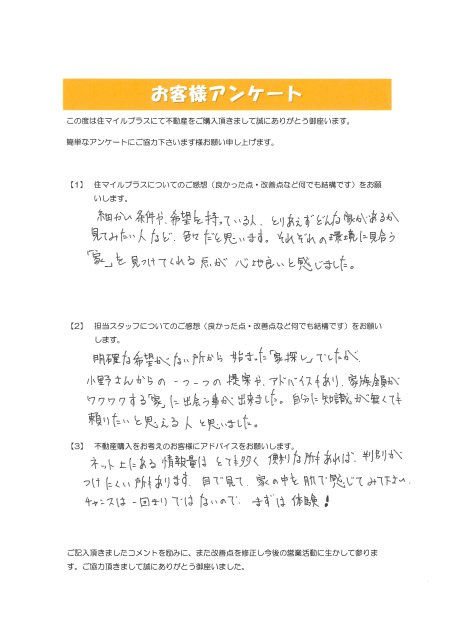 お客様アンケート
この度は住マイルプラスにて不動産をご購入頂きまして誠にありがとう御座います。
簡単なアンケートにご協力下さいます様お願い申し上げます。
【1】 住マイルプラスについてのご感想（良かった点・改善点など何でも結構です）をお願
いします。
細かい条件や、希望を持っている人、とりあえずどんな家があるか
見てみたい人など、色々だと思います。それぞれの環境に見合う
「家」を見つけてくれる点が心地良いと感じました。
【2】 担当スタッフについてのご感想（良かった点・改善点など何でも結構です）をお願い
します。
明確な希望がない所から始まった「家探し」でしたが、
小野さんからの一つ一つの提案や、アドバイスもあり、家族全員が
ワクワクする「家」に出会う事が出来ました。自分に知識が無くても
頼りたいと思える人と思いました。
【3】 不動産購入をお考えのお客様にアドバイスをお願いします。
ネット上にある情報量はとても多く便利な所もあれば、判別が
つけにくい所もあります。目で見て、家の中を肌で感じてみて下さい。
チャンスは一回きりではないので、まずは体験！
ご記入頂きましたコメントを励みに、また改善点を修正し今後の営業活動に生かして参りま
す。ご協力頂きまして誠にありがとう御座いました。